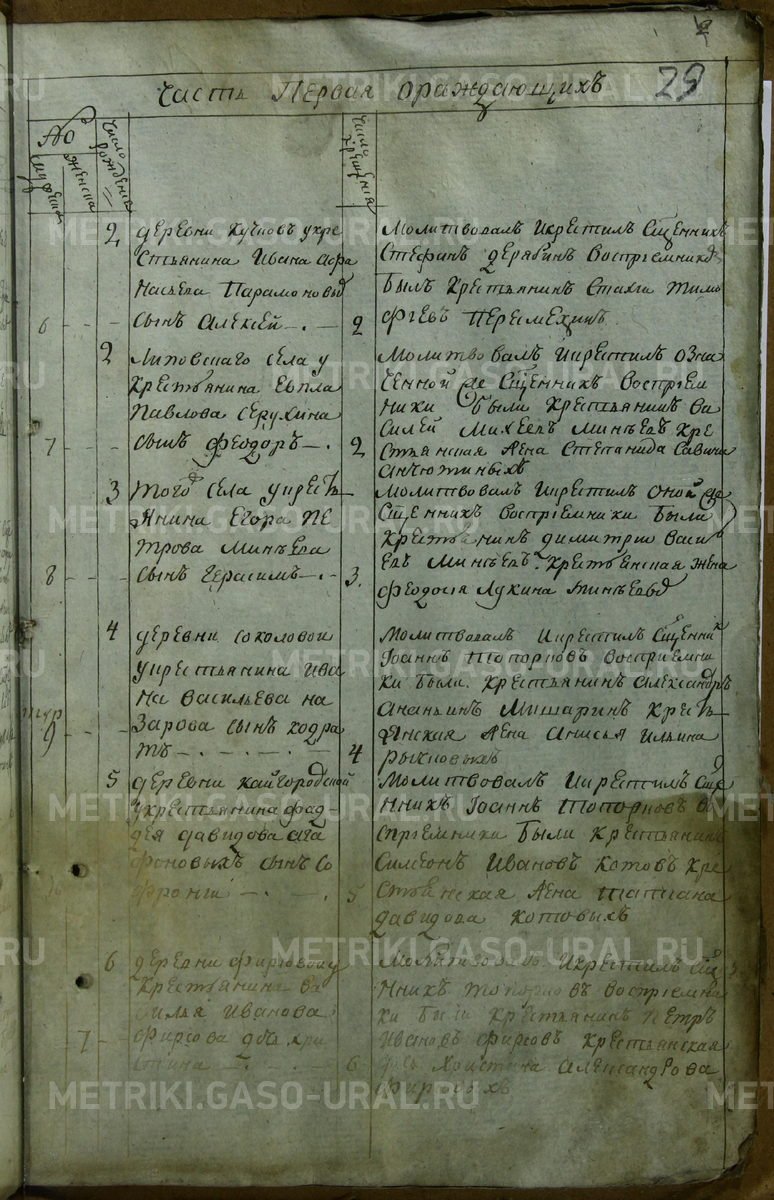 29
Часть Первая ораждающихъ
No
мужеска
женска
число рождения
число крещения
2
деревни Кучковъ укре
стьянина Ивана Афа
насьева Парамоновых
6
сынъ Алексей
2
Молитвовалъ Икрестилъ Сщенникъ
Стефанъ дерябинъ Воспрiемникъ
былъ Крестьянинъ Стахги Тимо
фѣевъ Перемехинъ
2
Липовскаго села у
Крестьянина Евпла
Павлова Серухина
7
сынъ феодоръ
2
Молитвовалъ Икрестилъ Озна
ченной же Сщенникъ Воспрiем
ники были Крестьянинъ Ва
силей Михеевъ Минѣевъ Кре
стьянская Жена Степанида Савина
3
того села укресть
янина Егора Пе
трова Минѣева
8
сынъ Герасимъ
3.
Молитвовалъ Икрестилъ Оной же
Сщенникъ Воспрiемники были
Крестьянинъ димитрiи Васил
евъ Минѣевъ. Крестьянская жена
феодосiя Лукина Минѣевыхъ
4
деревни соколовои
укрестьянина Ива
на Васильева на
9
зарова сынъ кодра
тъ
4
Молитвовалъ Икрестилъ Сщенникъ
Iоаннъ Топорковъ Воспрiемни
ки были. Крестьянинъ Александръ
Ананьинъ Мишаринъ Кресть
янская Жена Анисья Ильина
5
деревни кайгородской
укрестьянина фад
дея давидова Ага
фоновыхъ сынъ Со
фронiи
5
Молитвовалъ Икрестилъ Сще
нникъ Iоаннъ Топорковъ Во
спрiемники были крестьянинъ
Симеонъ Ивановъ Котовъ Кре
стьянская Жена Татiана
давидова Котовыхъ
6
деревни фирсовои у
Крестьянина Ва
силья Иванова
7
фирсова дчь хри
стина
6
Молитвовалъ Икрестилъ Сще
нникъ Топорковъ Воспрiемни
ки были крестьянинъ Петръ
Ивановъ фирсовъ Крестьянская
Христина Александрова
фирсовыхъ
METRIKI.GASO-URAL.RU